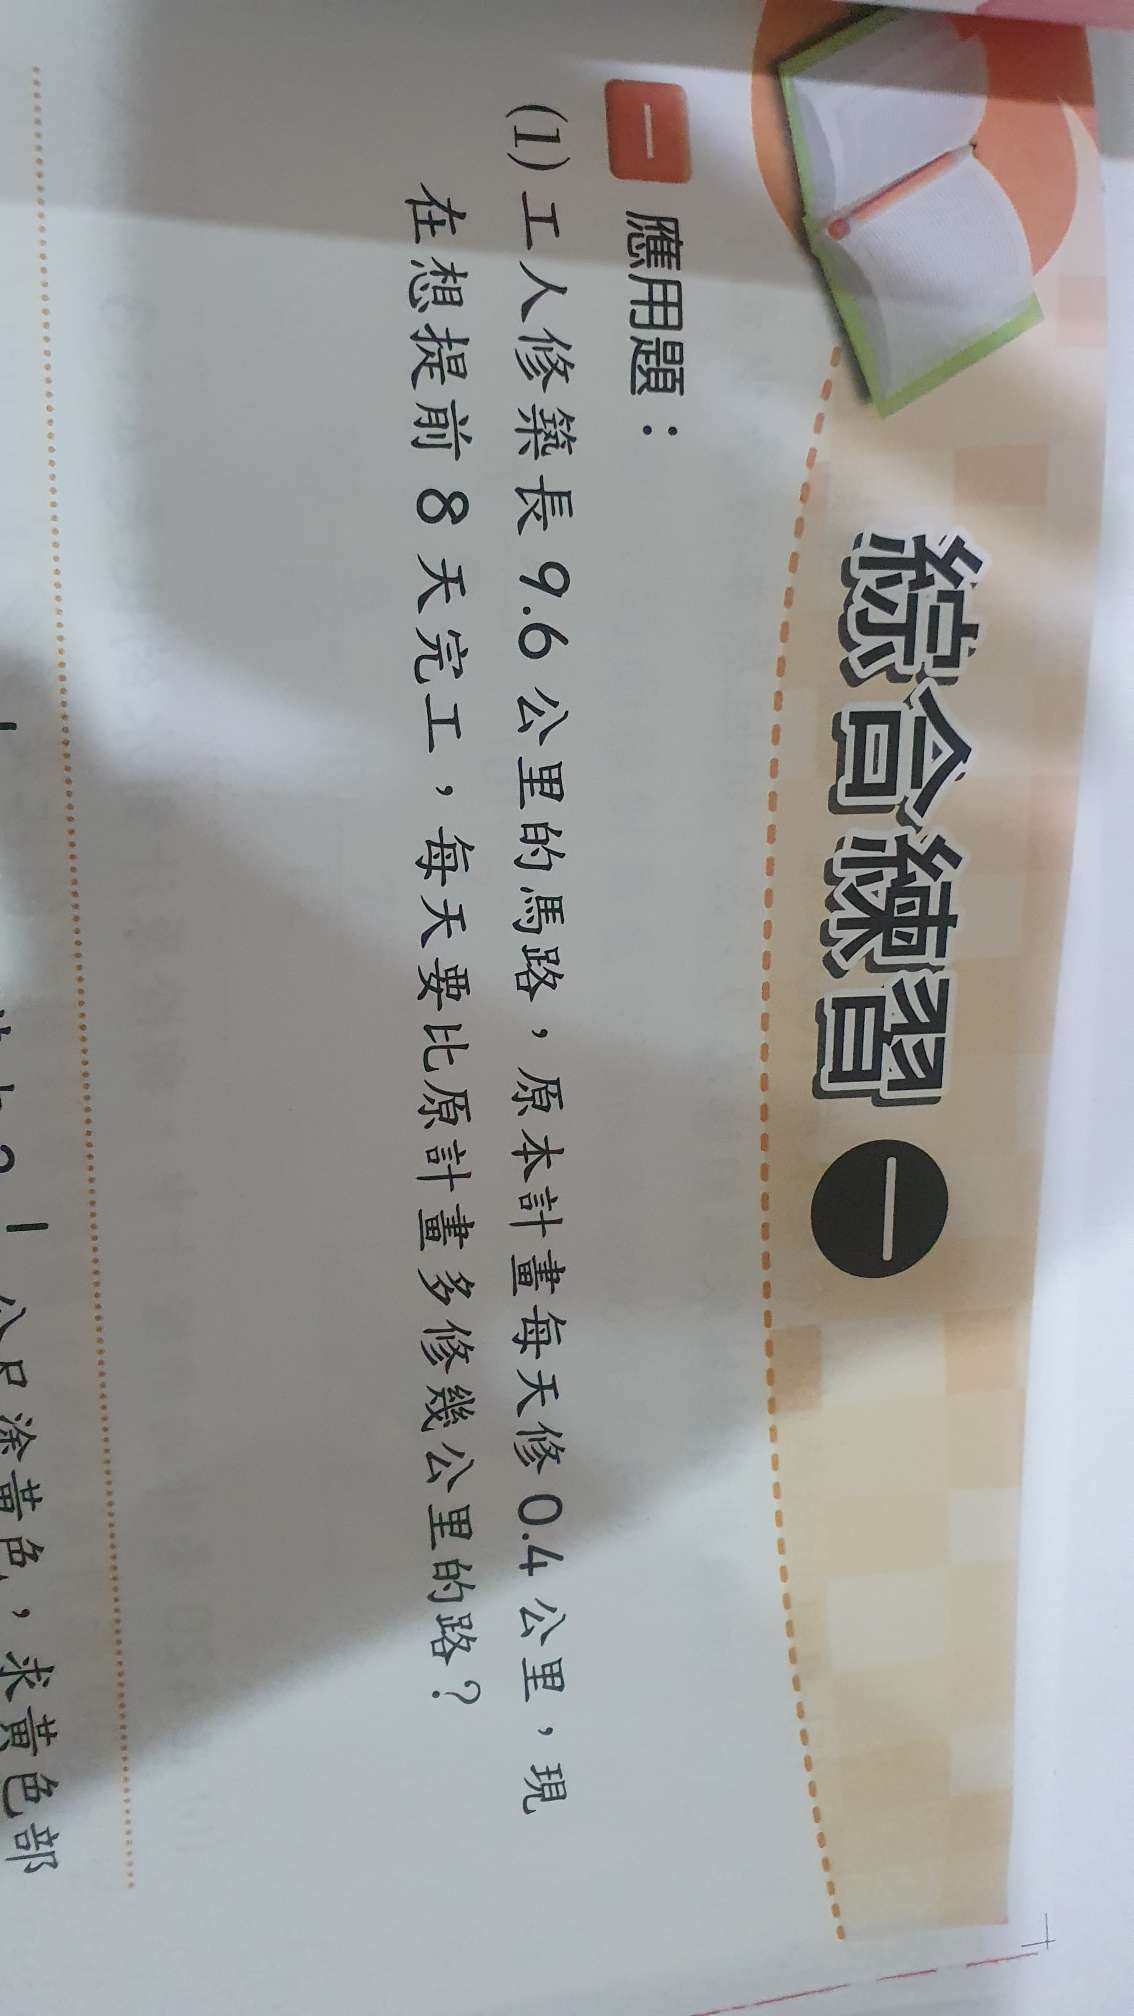 綜合練習 一
一 應用題：
(1) 工人修築長 9.6 公里的馬路，原本計畫每天修 0.4 公里，現
在想提前 8 天完工，每天要比原計畫多修幾公里的路？
公尺塗黃色，求黃色部